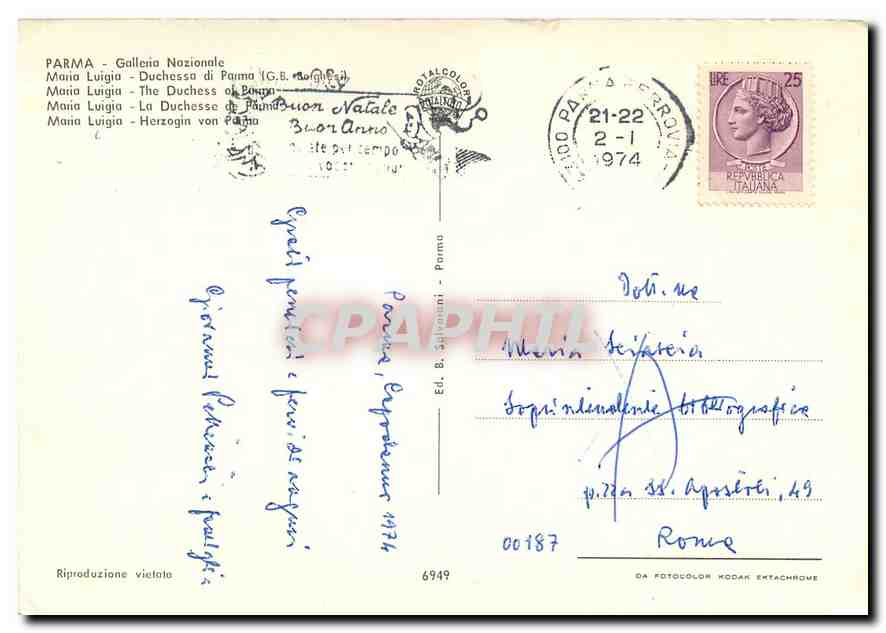 PARMA - Galleria Nazionale
Maria Luigia - Duchessa di Parma (G.B. Borghesi)
Maria Luigia - The Duchess of Parma
Maria Luigia - La Duchesse de Parma
Maria Luigia - Herzogin von Parma
ROTALCOLOR
ROTALFOTO
Buon Natale
Buon Anno
per tempo
PARMA FERROVIA
21-22
2-1
1974
LIRE 25
POSTE
REPVBBLICA
ITALIANA
Parma, Capodanno 1974
Grati pensieri e fervidi auguri
Giovanni e famiglia
Ed. B. Salvaiani - Parma
CPAPHIL
Dott.na
Maria
Soprintendente bibliografica
p.zza SS. Apostoli, 49
00187 Roma
Riproduzione vietata
6949
DA FOTOCOLOR KODAK EKTACHROME